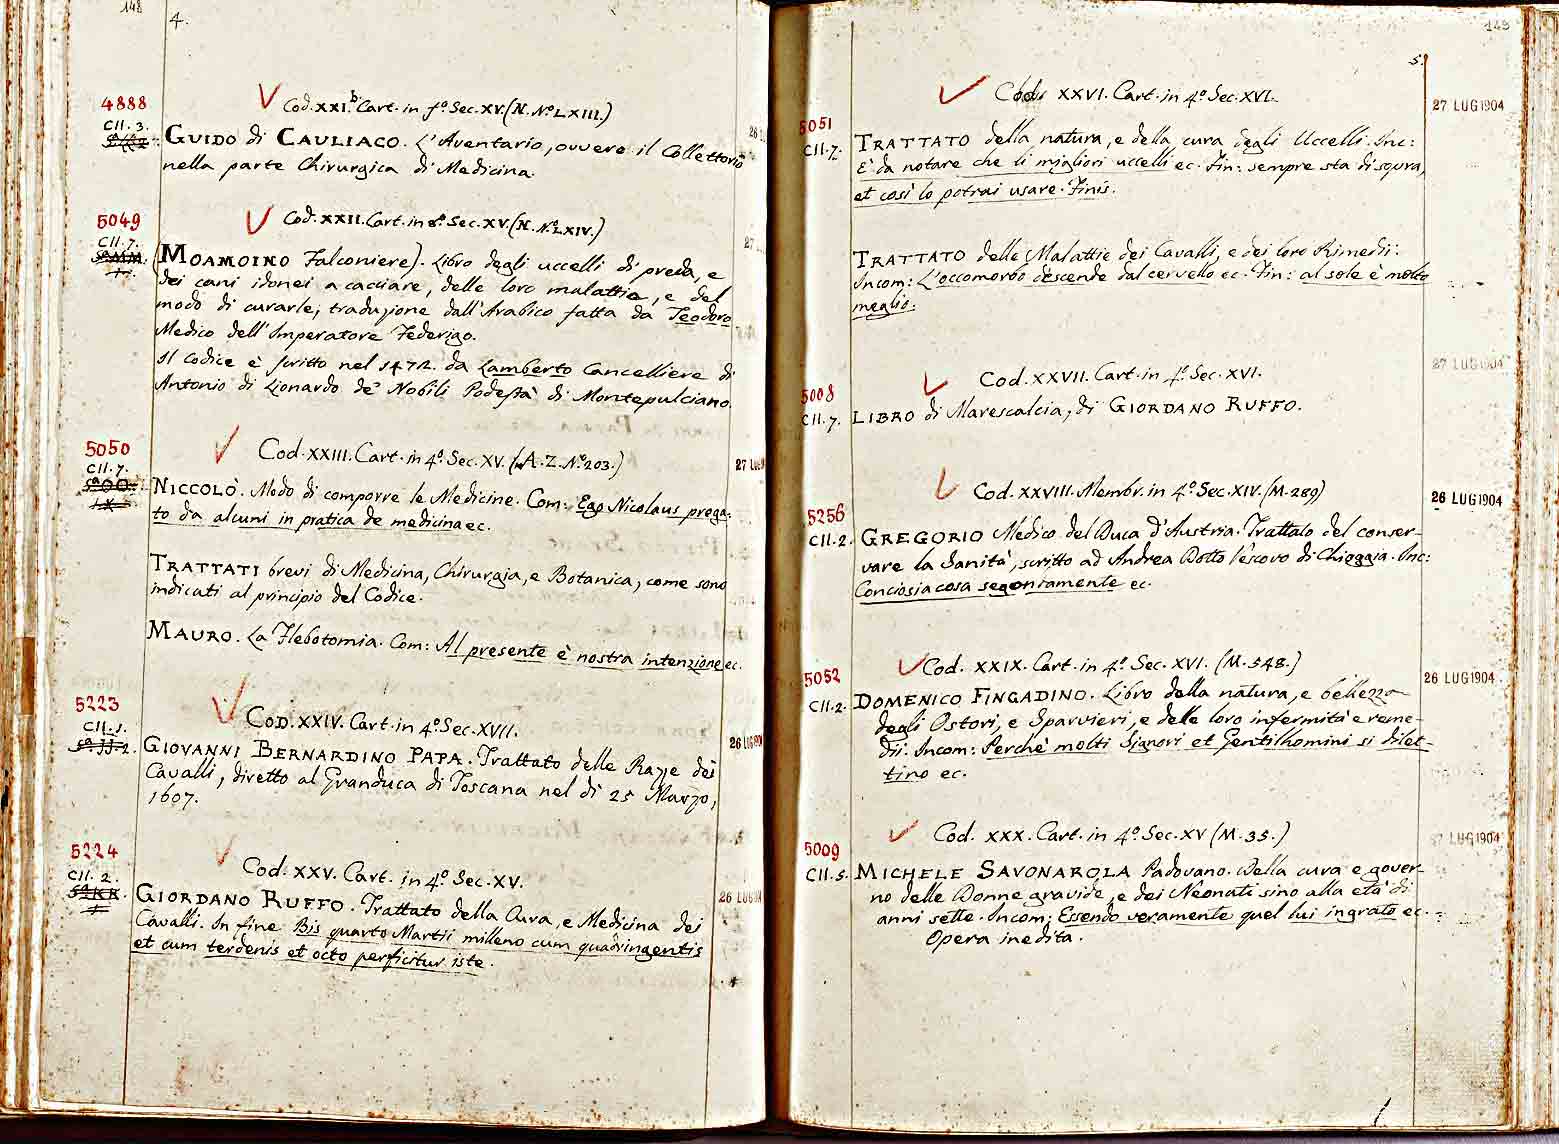 148
4.
4888
Cod. XXI.b Cart. in fº Sec. XV. (N. Nº LXIII.)
CII. 3.
GUIDO di CAULIACO. L'Aventario, ovvero il Collettorio
nella parte Chirurgica di Medicina.
5049
Cod. XXII. Cart. in 8º Sec. XV. (N. Nº LXIV.)
CII. 7.
(MOAMOINO Falconiere). Libro degli uccelli di preda, e
dei cani idonei a cacciare, delle loro malattie, e del
modo di curarle; traduzione dall'Arabico fatta da Teodoro
Medico dell'Imperatore Federigo.
Il codice è scritto nel 1472. da Lamberto Cancelliere di
Antonio di Lionardo de' Nobili Podestà di Montepulciano.
5050
Cod. XXIII. Cart. in 4º Sec. XV. (A. Z. Nº 203.)
27 LUG
CII. 7.
NICCOLÒ. Modo di comporre le Medicine. Com: Ego Nicolaus prega:
to da alcuni in pratica de medicina ec.
TRATTATI brevi di Medicina, Chirurgia, e Botanica, come sono
indicati al principio del Codice.
MAURO. La Flebotomia. Com: Al presente è nostra intenzione ec.
5223
Cod. XXIV. Cart. in 4º Sec. XVII.
CII. 1.
26 LUG 190
GIOVANNI BERNARDINO PAPA. Trattato delle Razze dei
Cavalli, diretto al Granduca di Toscana nel dì 25 Marzo,
1607.
5224
Cod. XXV. Cart. in 4º Sec. XV.
CII. 2.
26 LUG
GIORDANO RUFFO. Trattato della Cura, e Medicina dei
Cavalli. In fine Bis quarto Martii milleno cum quadringentis
et cum terdenis et octo perficitur iste.
149
5.
Codic XXVI. Cart. in 4º Sec. XVI.
27 LUG 1904
5051
CII. 7.
TRATTATO della natura, e della cura degli Uccelli. Inc:
E' da notare che li migliori uccelli ec. Fin: sempre sta di sopra,
et così lo potrai usare. Finis.
TRATTATO delle Malattie dei Cavalli, e dei loro Rimedii:
Incom: L'occomorbo descende dal cervello ec. Fin: al sole è molto
meglio.
27 LUG 1904
5008
Cod. XXVII. Cart. in fº Sec. XVI.
CII. 7.
LIBRO di Marescalcia, di GIORDANO RUFFO.
Cod. XXVIII. Membr. in 4º Sec. XIV. (M. 289)
26 LUG 1904
5256
CII. 2.
GREGORIO Medico del Duca d'Austria. Trattato del conser-
vare la Sanità, scritto ad Andrea Dotto Vescovo di Chioggia. Inc:
Conciosia cosa segontamente ec.
5052
Cod. XXIX. Cart. in 4º Sec. XVI. (M. 548.)
26 LUG 1904
CII. 2.
DOMENICO FINGADINO. Libro della natura, e bellezza
degli Ostori, e Sparvieri, e delle loro infermità e reme-
dii. Incom: Perchè molti Signori et Gentilhomini si dilet-
tino ec.
5009
Cod. XXX. Cart. in 4º Sec. XV (M. 35.)
27 LUG 1904
CII. 5.
MICHELE SAVONAROLA Padovano. Della cura e gover-
no delle Donne gravide, e dei Neonati sino alla età di
anni sette. Incom; Essendo veramente quel lui ingrato ec.
Opera inedita.